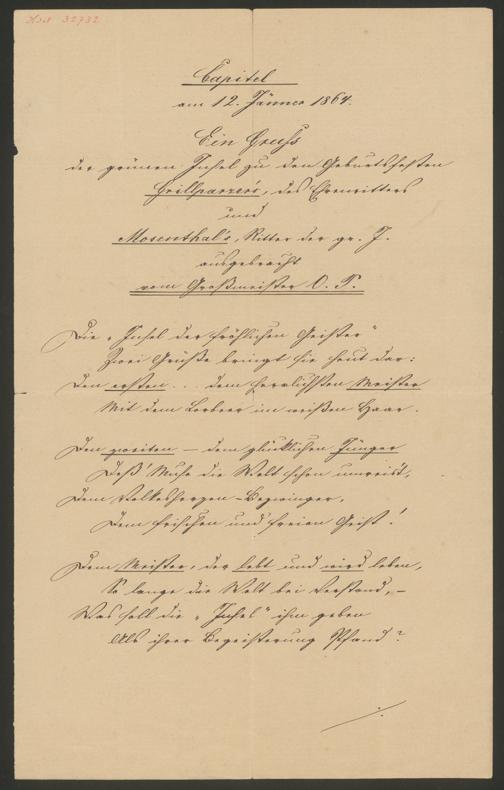 Capitel
am 12. Jänner 1864.
Ein Gruß
der grünen Insel zu den Geburtsfesten
Grillparzer's, des Ehrenritters
und
Mosenthal's, Ritter der gr. J.
ausgebracht
vom Großmeister O. P.
Die „Insel der fröhlichen Geister"
Zwei Grüße bringt sie heut dar:
Den ersten . . . dem herrlichsten Meister
Mit dem Lorbeer im weißen Haar.
Den zweiten – dem glücklichen Jünger
Deß' Muse die Welt schon umreist,
Dem Volksherzen-Bezwinger,
Dem frischen und freien Geist!
Dem Meister, der lebt und wird leben,
So lange die Welt bei Verstand, –
Was soll die „Insel" ihm geben
Als ihrer Begeisterung Pfand?